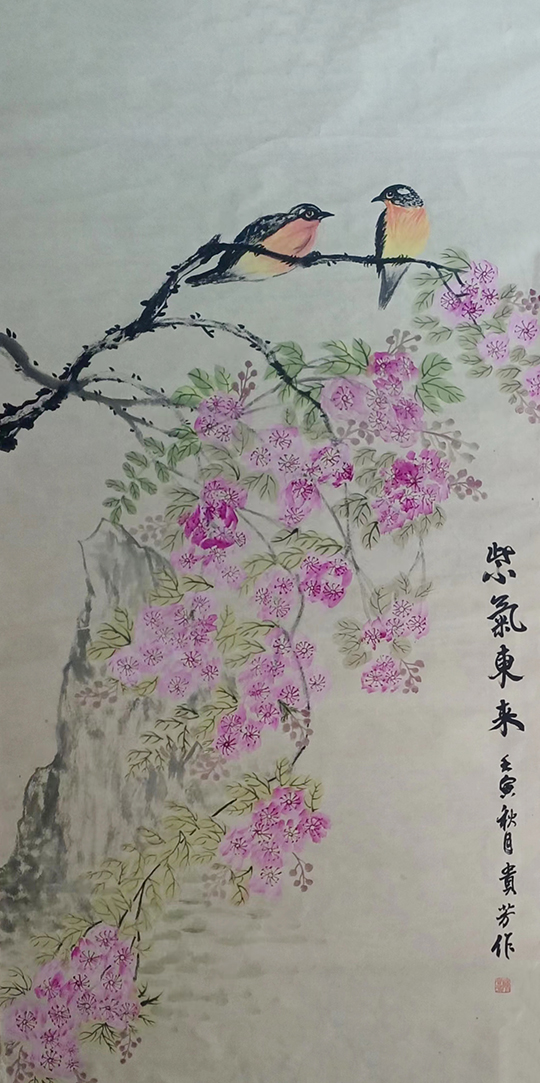 紫氣東来
壬寅秋月貴芳作